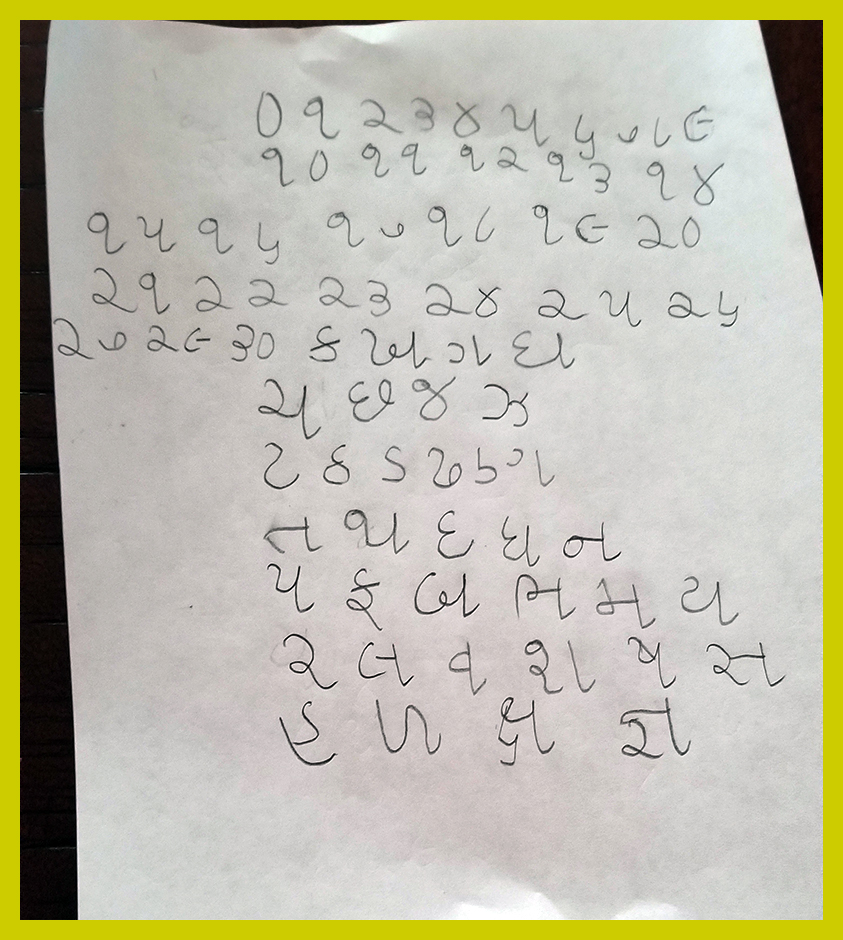 ૦ ૧ ૨ ૩ ૪ ૫ ૬ ૭ ૮ ૯
૧૦ ૧૧ ૧૨ ૧૩ ૧૪
૧૫ ૧૬ ૧૭ ૧૮ ૧૯ ૨૦
૨૧ ૨૨ ૨૩ ૨૪ ૨૫ ૨૬
૨૭ ૨૯ ૩૦ ક ખ ગ ઘ
ચ છ જ ઝ
ટ ઠ ડ ઢ ણ
ત થ દ ધ ન
પ ફ બ ભ મ ય
ર લ વ શ ષ સ
હ ળ ક્ષ જ્ઞ